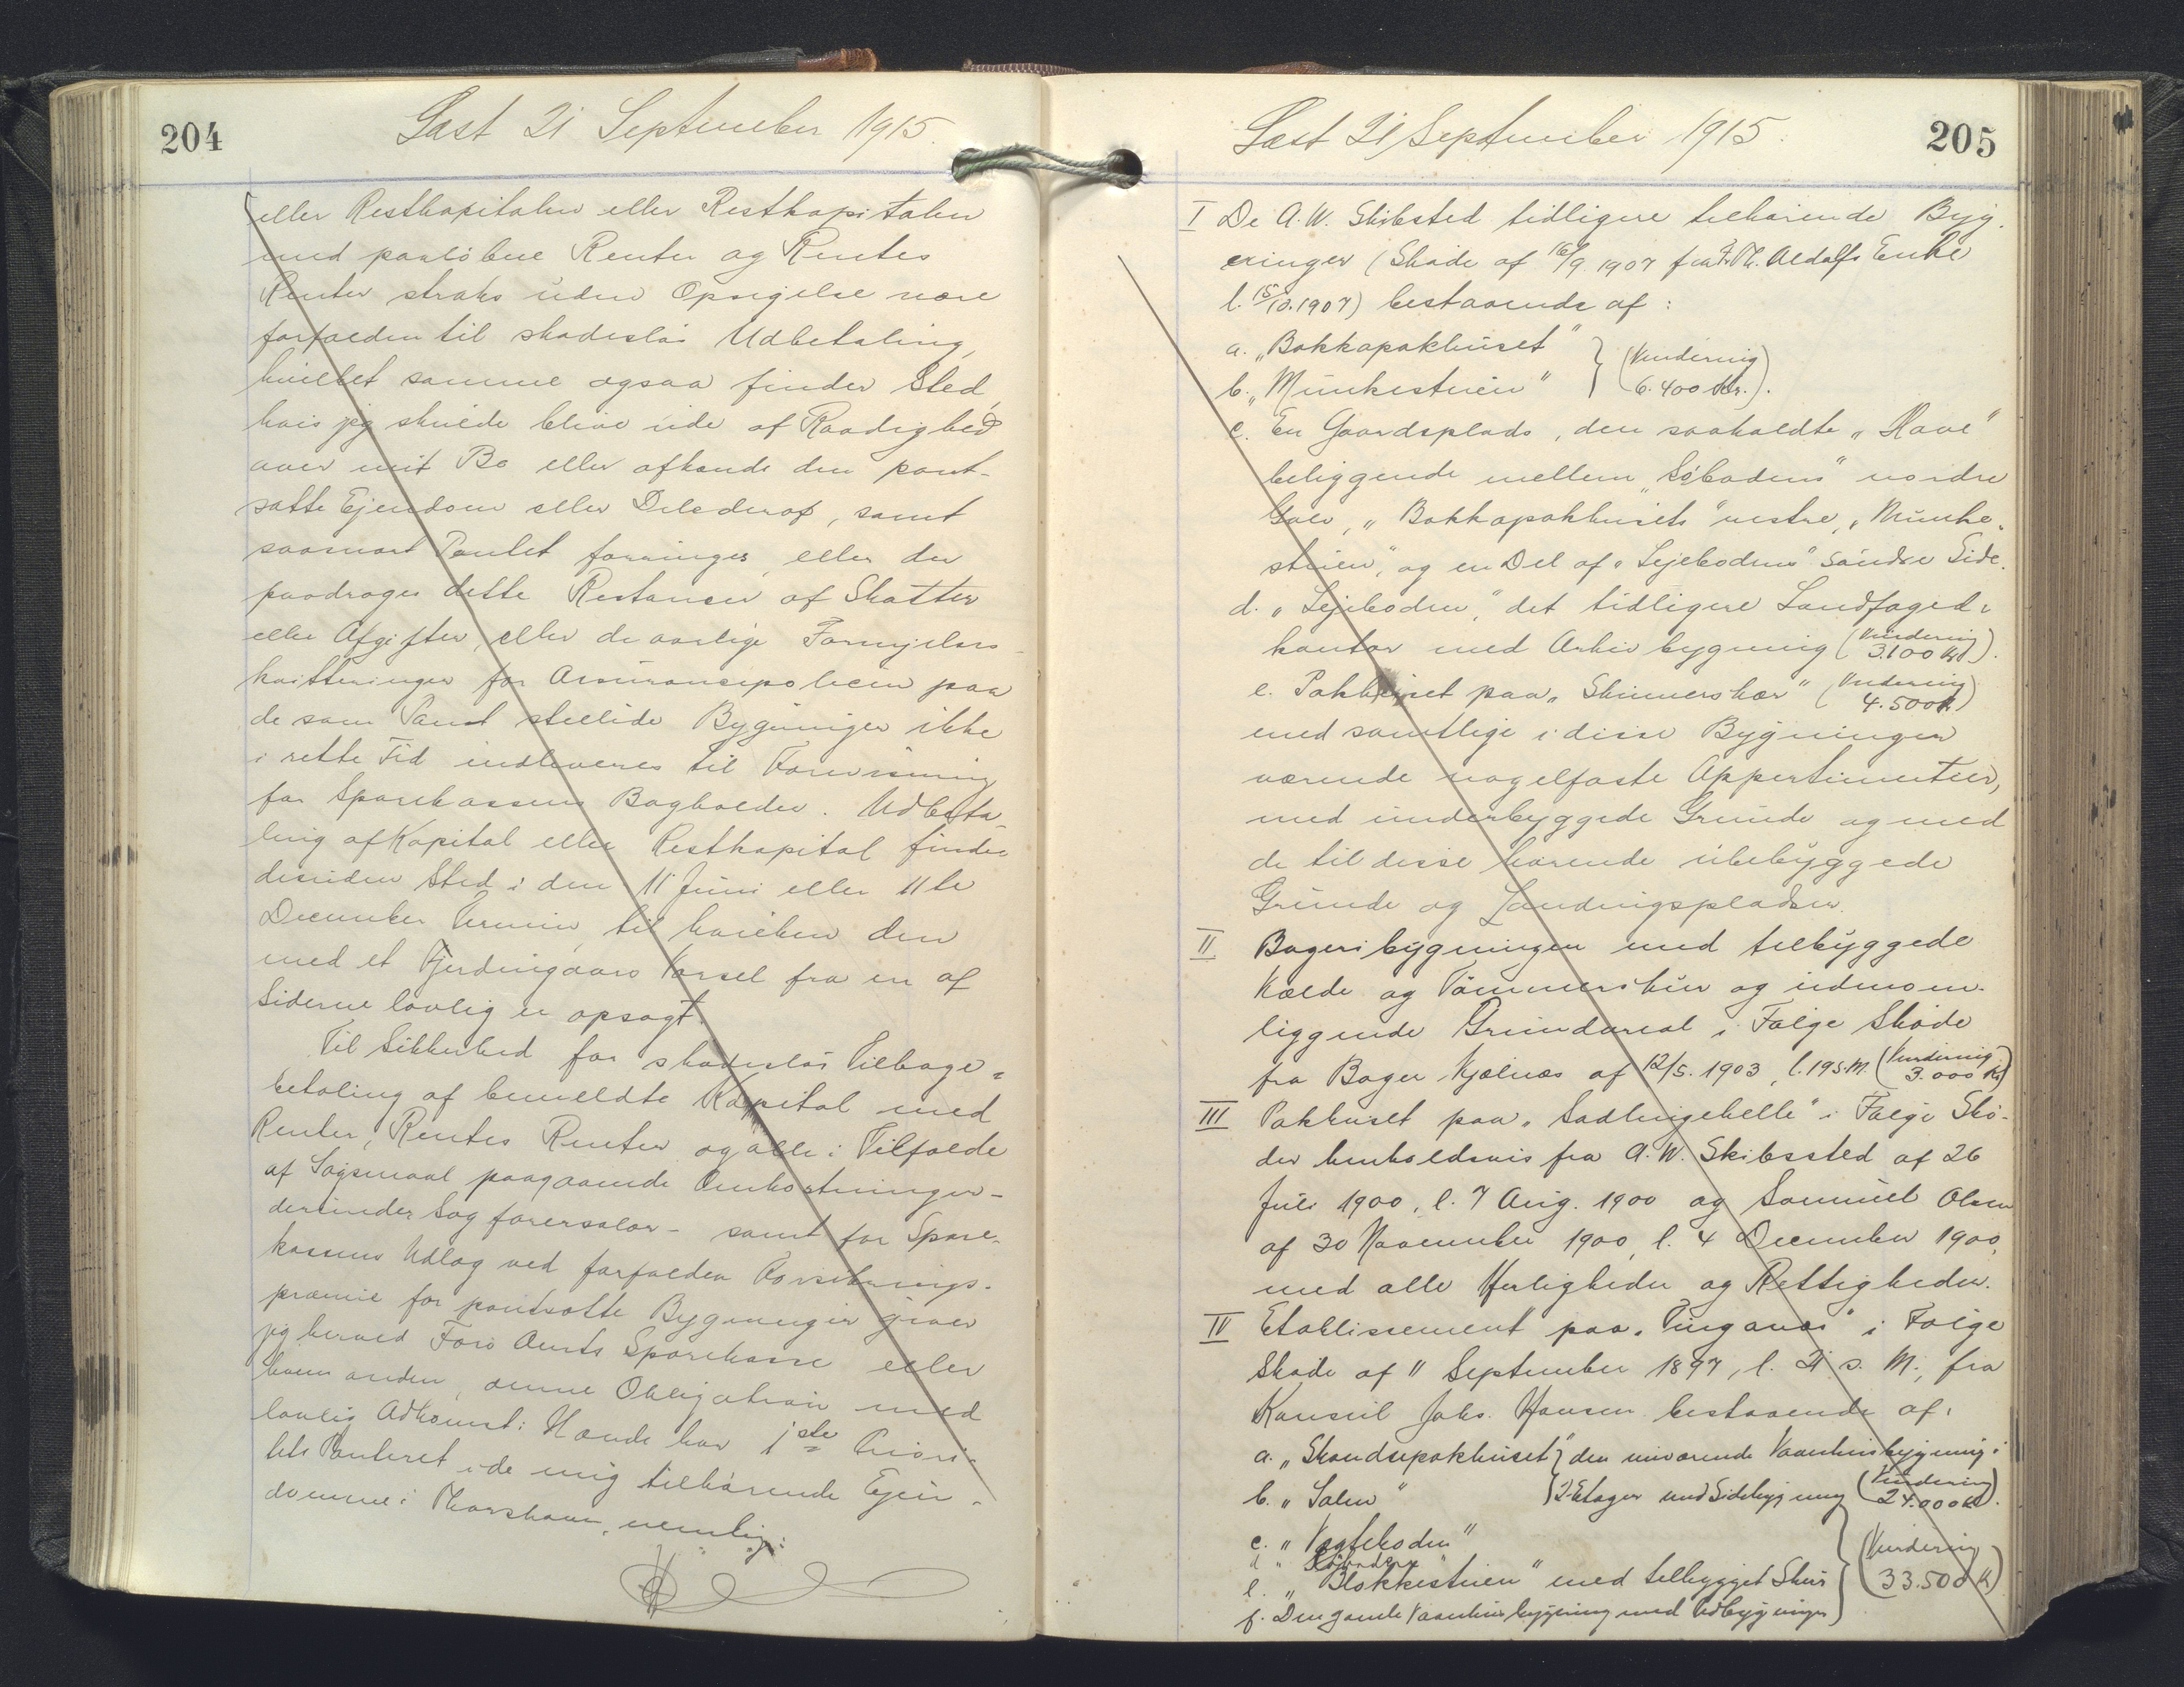 204
Læst 21 September 1915.
eller Restkapitalen eller Restkapitalen
med paaløbne Renter og Rentes
Renter straks uden Opsigelse være
forfalden til skadesløs Udbetaling,
hvilket samme ogsaa finder Sted,
hvis jeg skulde blive ude af Raadighed
over mit Bo eller afhænde den pant-
satte Ejendom eller Dele deraf, samt
saasnart Pantet forringes, eller der
paadrages dette Restancer af Skatter
eller Afgifter, eller de aarlige Fornyelses-
kvitteringer for Assurancepolicen paa
de som Pant stillede Bygninger ikke
i rette Tid indleveres til Forevisning
for Sparekassens Bogholder. Udbeta-
ling af Kapital eller Restkapital finder
desuden Sted i den 11 Juni eller 11te
December Termin, til hvilken den
med et Fjerdingaars Varsel fra en af
Siderne lovlig er opsagt.
Til Sikkerhed for skadesløs Tilbage-
betaling af bemeldte Kapital med
Renter, Rentes Renter og alle i Tilfælde
af Søgsmaal paagaaende Omkostninger -
derunder Sagførersalær - samt for Spare-
kassens Udlæg ved forfalden Forsikrings-
præmie for pantsatte Bygninger giver
jeg herved Færø Amts Sparekasse eller
hvem anden, denne Obligation med
lovlig Adkomst i Hænde har 1ste Priori-
tets Panteret i de mig tilhørende Ejen-
domme i Thorshavn, nemlig:
205
Læst 21 September 1915.
I De A. W. Skibsted tidligere tilhørende Byg-
ninger (Skøde af 16/9. 1907 fra Fr. Th. Adolfs Enke
l. 15/10. 1907) bestaaende af:
a. „Bakkapakhuset"
b. „Munkestuen" } (Vurdering 6.400 Kr.).
c. En Gaardsplads, den saakaldte „Have"
beliggende mellem „Søbodens" nordre
Gavl, „Bakkapakhusets" vestre, „Munke-
stuen", og en Del af „Lejebodens" søndre Side.
d. „Lejeboden", det tidligere Landfoged-
kontor med Arkivbygning (Vurdering 3.100 Kr).
e. Pakhuset paa „Skinnerskær" (Vurdering 4.500 K.)
med samtlige i disse Bygninger
værende nagelfaste Appertinentier,
med underbyggede Grunde og med
de til disse hørende ubebyggede
Grunde og Landingspladser.
II Bageribygningen med tilbyggede
Kælder og Tømmerskur og udenom-
liggende Grundareal i Følge Skøde
fra Bager Kjølnæs af 12/5. 1903, l. 19 s. M. (Vurdering 3.000 Kr)
III Pakhuset paa „Sadlingehelle" i Følge Skø-
der henholdsvis fra A. W. Skibssted af 26
Juli 1900, l. 7 Aug. 1900 og Samuel Olsen
af 30 November 1900, l. 4 December 1900,
med alle Herligheder og Rettigheder.
IV Etablissement paa „Tinganæs" i Følge
Skøde af 11 September 1897, l. 21 s. M., fra
Konsul Johs. Hansen bestaaende af:
a. „Skandsepakhuset" } den nuværende Vaaningsbygning i
b. „Salen" } 2 Etager med Sidebygning (Vurdering 24.000 Kr).
c. „Vagteboden"
d „
e. „Blokkestuen" med tilbygget Skur
f. Den gamle Vaaningsbygning med Udbygninger } (Vurdering 33.500 K)